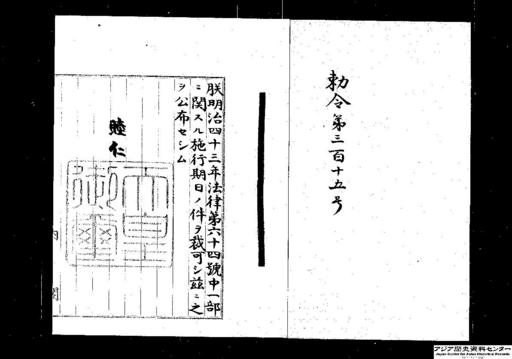 勅令第三百十五号
朕明治四十三年法律第六十四號中一部
ニ関スル施行期日ノ件ヲ裁可シ茲ニ之
ヲ公布セシム
睦仁
天皇御璽
内閣
アジア歴史資料センター
Japan Center for Asian Historical Records